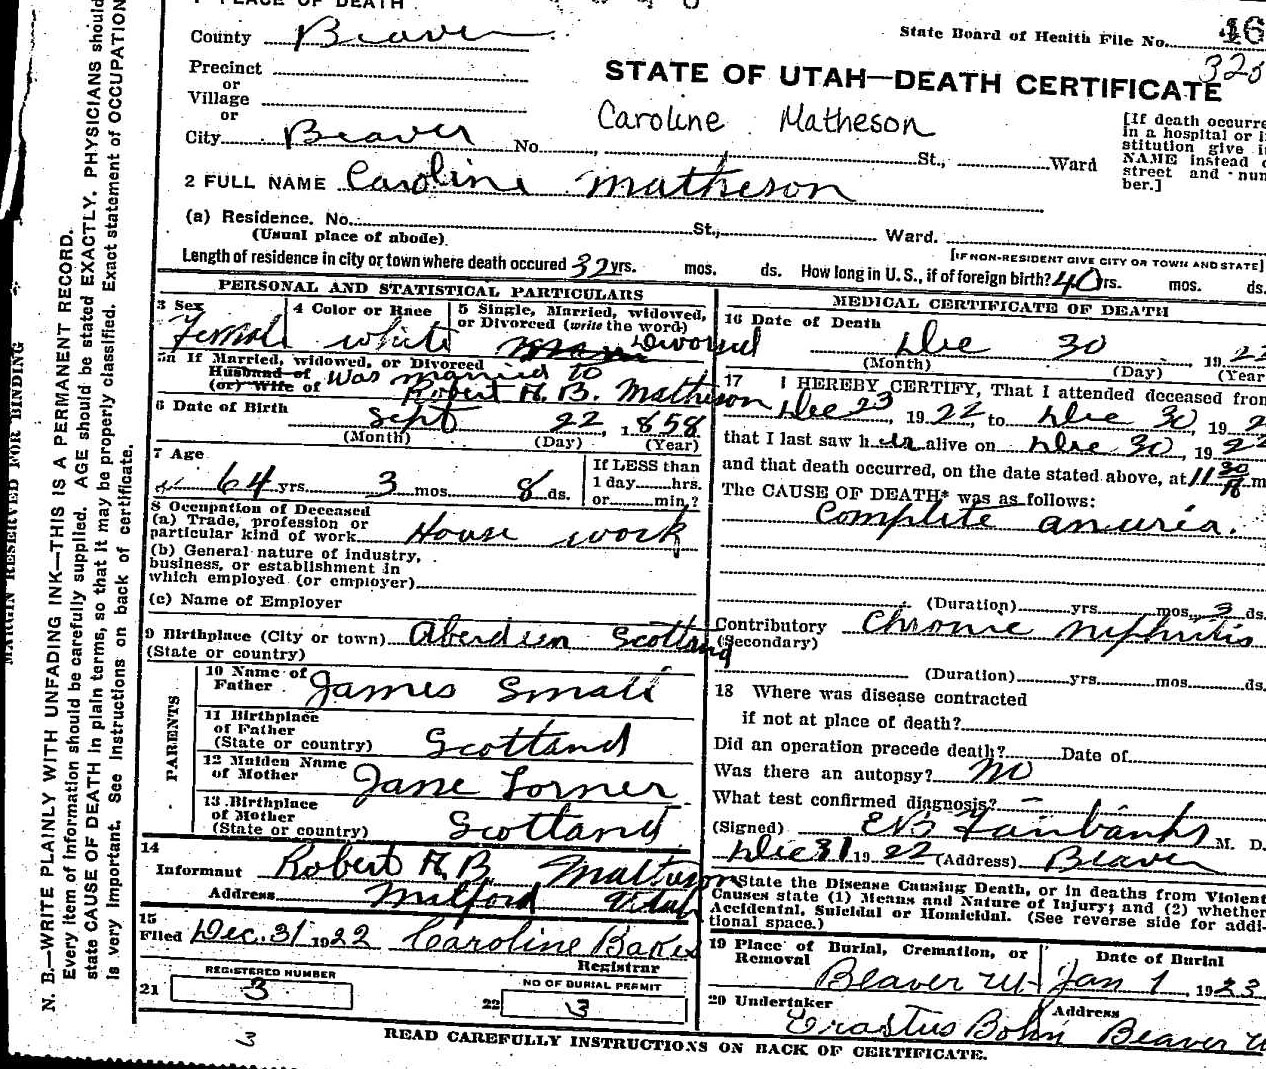 1 PLACE OF DEATH
County Beaver
State Board of Health File No.
Precinct
or
Village
or
STATE OF UTAH—DEATH CERTIFICATE
Caroline Matheson
City Beaver No. St., Ward
[If death occurre
in a hospital or i
stitution give i
NAME instead o
street and num
ber.]
2 FULL NAME Caroline Matheson
(a) Residence. No. St., Ward.
(Usual place of abode)
[IF NON-RESIDENT GIVE CITY OR TOWN AND STATE]
Length of residence in city or town where death occured 32 yrs. mos. ds. How long in U.S., if of foreign birth? 40 rs. mos. ds.
PERSONAL AND STATISTICAL PARTICULARS
3 Sex
Female
4 Color or Race
white
5 Single, Married, widowed,
or Divorced (write the word)
Divorced
5a If Married, widowed, or Divorced
Husband of Was married to
(or) Wife of Robert H. B. Matheson
6 Date of Birth Sept 22, 1858
(Month) (Day) (Year)
7 Age
64 yrs. 3 mos. 8 ds.
If LESS than
1 day hrs.
or min.?
8 Occupation of Deceased
(a) Trade, profession or
particular kind of work House work
(b) General nature of industry,
business, or establishment in
which employed (or employer)
(c) Name of Employer
9 Birthplace (City or town) Aberdeen Scotland
(State or country)
PARENTS
10 Name of
Father James Small
11 Birthplace
of Father
(State or country) Scotland
12 Maiden Name
of Mother Jane
13 Birthplace
of Mother
(State or country) Scotland
14
Informant Robert H. B. Matheson
Address Milford Utah
15
Filed Dec. 31 1922 Caroline
Registrar
21 REGISTERED NUMBER
3
22 NO OF BURIAL PERMIT
3
MEDICAL CERTIFICATE OF DEATH
16 Date of Death
Dec 30 1922
(Month) (Day) (Year
17 I HEREBY CERTIFY, That I attended deceased from
Dec 23, 1922, to Dec 30, 192
that I last saw her alive on Dec 30, 1922
and that death occurred, on the date stated above, at 11 30 A m
The CAUSE OF DEATH* was as follows:
Complete anuria.
(Duration) yrs. mos. 3 ds.
Contributory Chronic nephritis
(Secondary)
(Duration) yrs. mos. ds.
18 Where was disease contracted
if not at place of death?
Did an operation precede death? Date of
Was there an autopsy? no
What test confirmed diagnosis? —
(Signed) Fairbanks M. D.
Dec 31 1922 (Address) Beaver
*State the Disease Causing Death, or in deaths from Violent
Causes state (1) Means and Nature of Injury; and (2) whether
Accidental, Suicidal or Homicidal. (See reverse side for addi-
tional space.)
19 Place of Burial, Cremation, or
Removal
Beaver Ut
Date of Burial
Jan 1, 1923
20 Undertaker
Erastus Bohn
Address
Beaver U
3
READ CAREFULLY INSTRUCTIONS ON BACK OF CERTIFICATE.
MARGIN RESERVED FOR BINDING
N. B.—WRITE PLAINLY WITH UNFADING INK—THIS IS A PERMANENT RECORD.
Every item of information should be carefully supplied. AGE should be stated EXACTLY. PHYSICIANS should
state CAUSE OF DEATH in plain terms, so that it may be properly classified. Exact statement of OCCUPATION
is very important. See instructions on back of certificate.